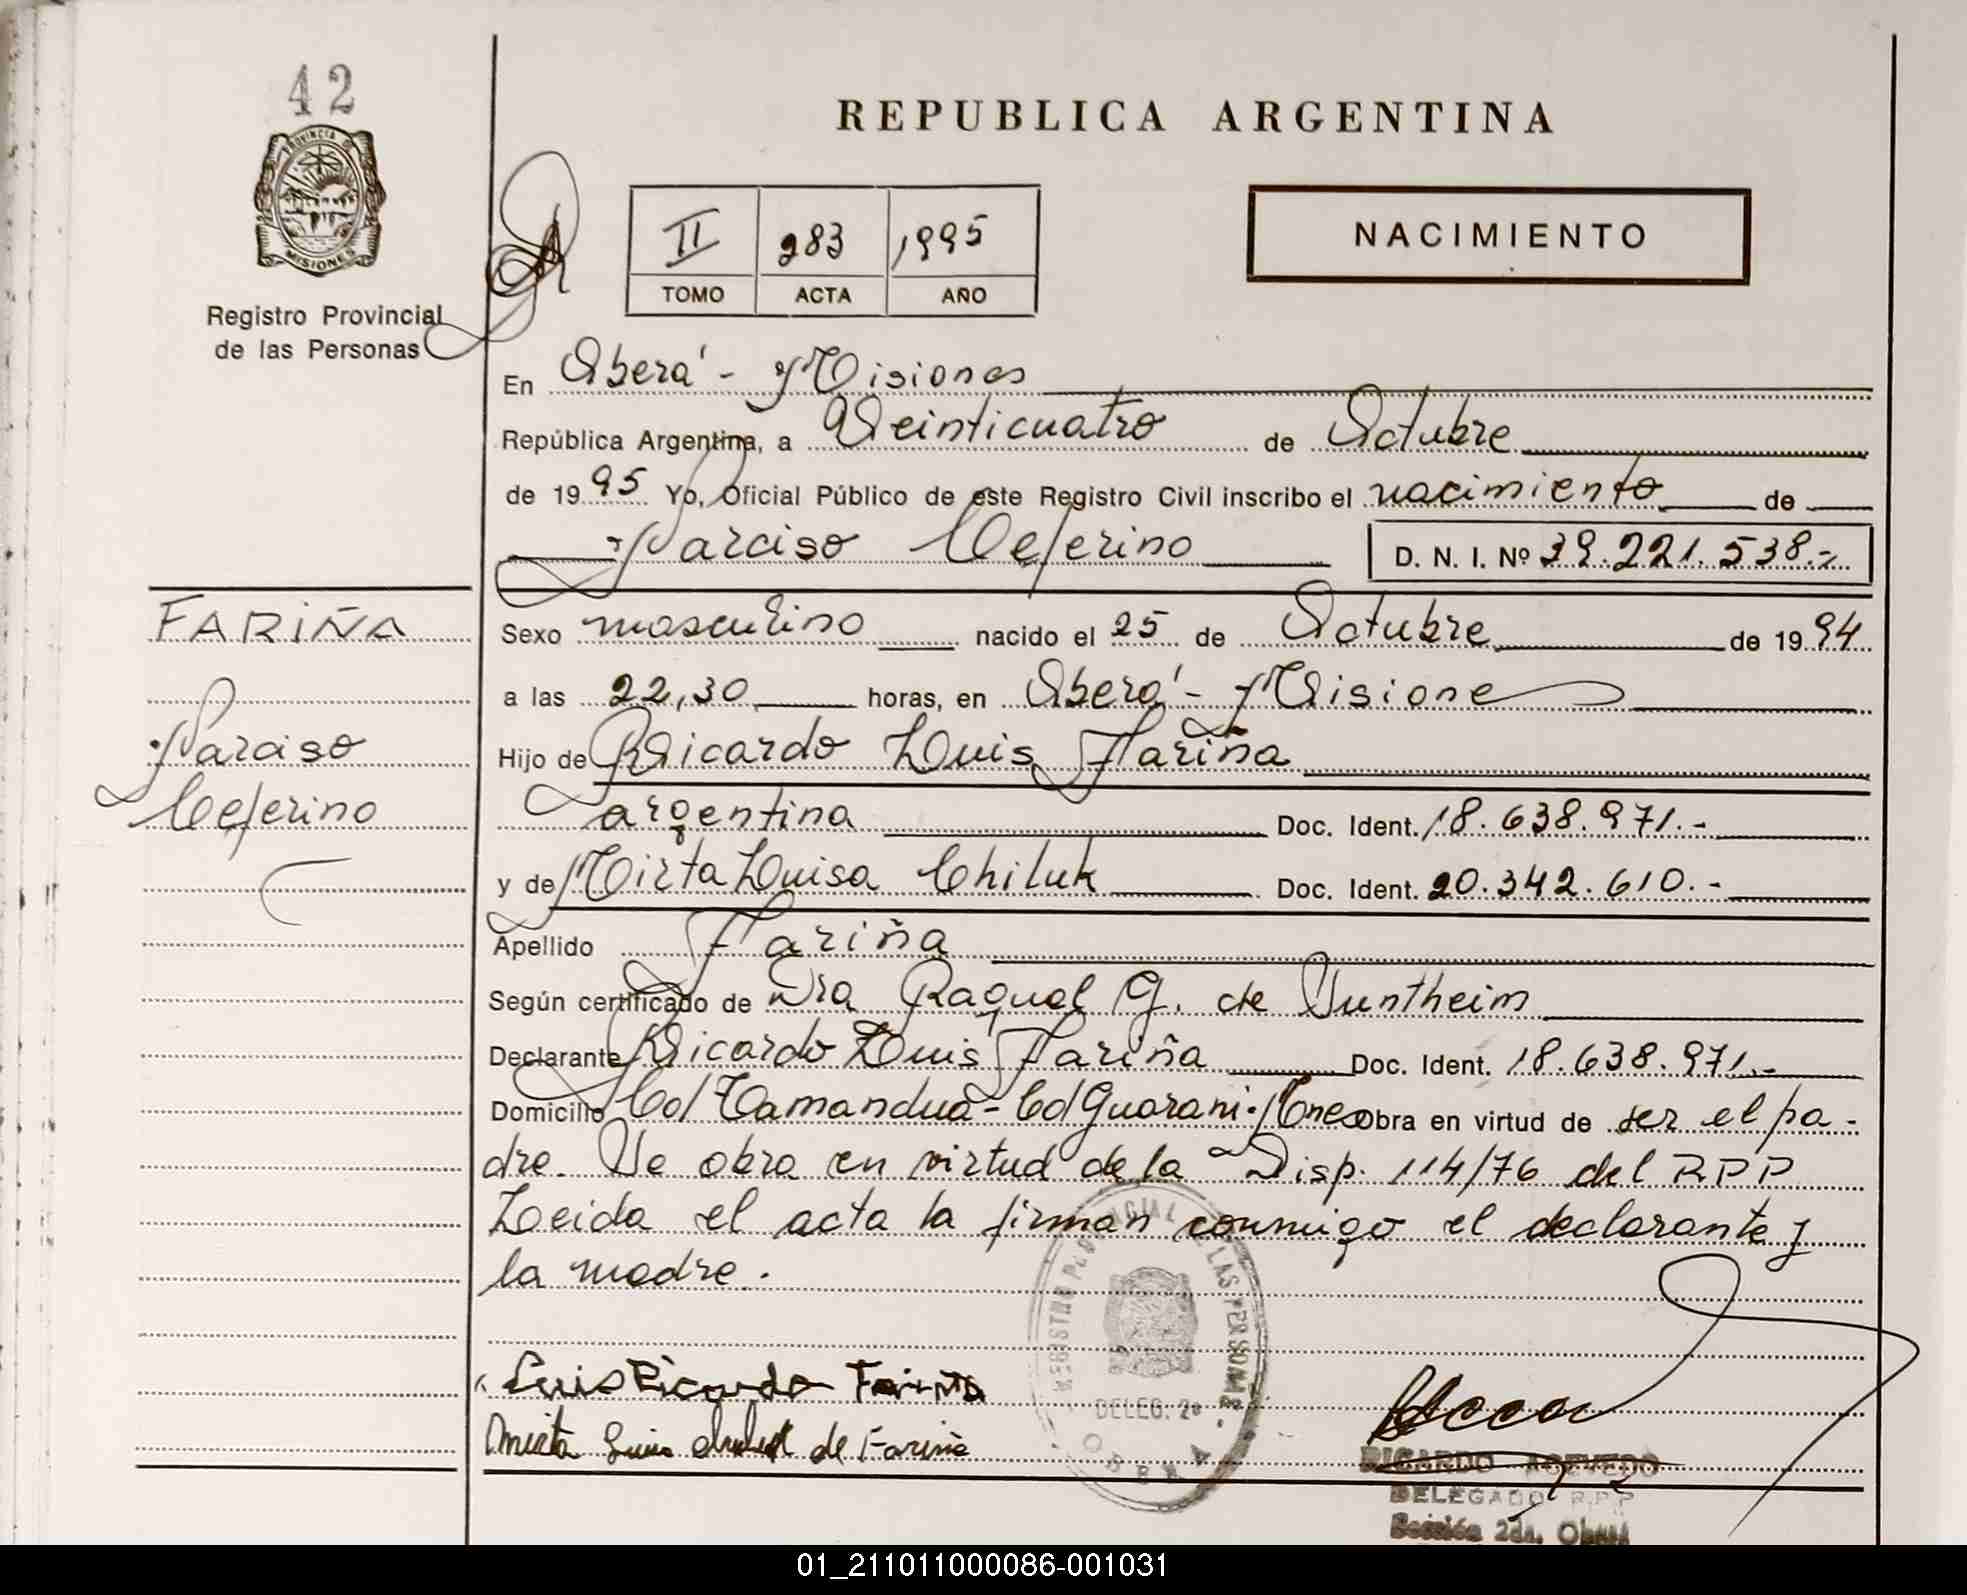 42
PROVINCIA DE
MISIONES
Registro Provincial
de las Personas
REPUBLICA ARGENTINA
II 283 1995
TOMO ACTA AÑO
NACIMIENTO
En Oberá - Misiones
República Argentina, a Veinticuatro de Octubre
de 1995 Yo, Oficial Público de este Registro Civil inscribo el nacimiento de
Narciso Ceferino D. N. I. Nº 39.221.538.-
FARIÑA
Narciso
Ceferino
Sexo masculino nacido el 25 de Octubre de 1994
a las 22,30 horas, en Oberá - Misiones
Hijo de Ricardo Luis Fariña
argentina Doc. Ident. 18.638.971.-
y de Mirta Luisa Chiluk Doc. Ident. 20.342.610.-
Apellido Fariña
Según certificado de Dra Raquel G. de Suntheim
Declarante Ricardo Luis Fariña Doc. Ident. 18.638.971.-
Domicilio Co/Tamanduá - Co/Guarani. Mnes Obra en virtud de ser el pa-
dre. Se obra en virtud de la Disp. 114/76 del RPP
Leida el acta la firman conmigo el declarante y
la madre.
REGISTRO PROVINCIAL DE LAS PERSONAS
DELEG. 2ª
OBERA
Luis Ricardo Fariña
Mirta Luisa Chiluk de Fariña
RICARDO ACEVEDO
DELEGADO R.P.P
Sección 2da. Oberá
01_211011000086-001031